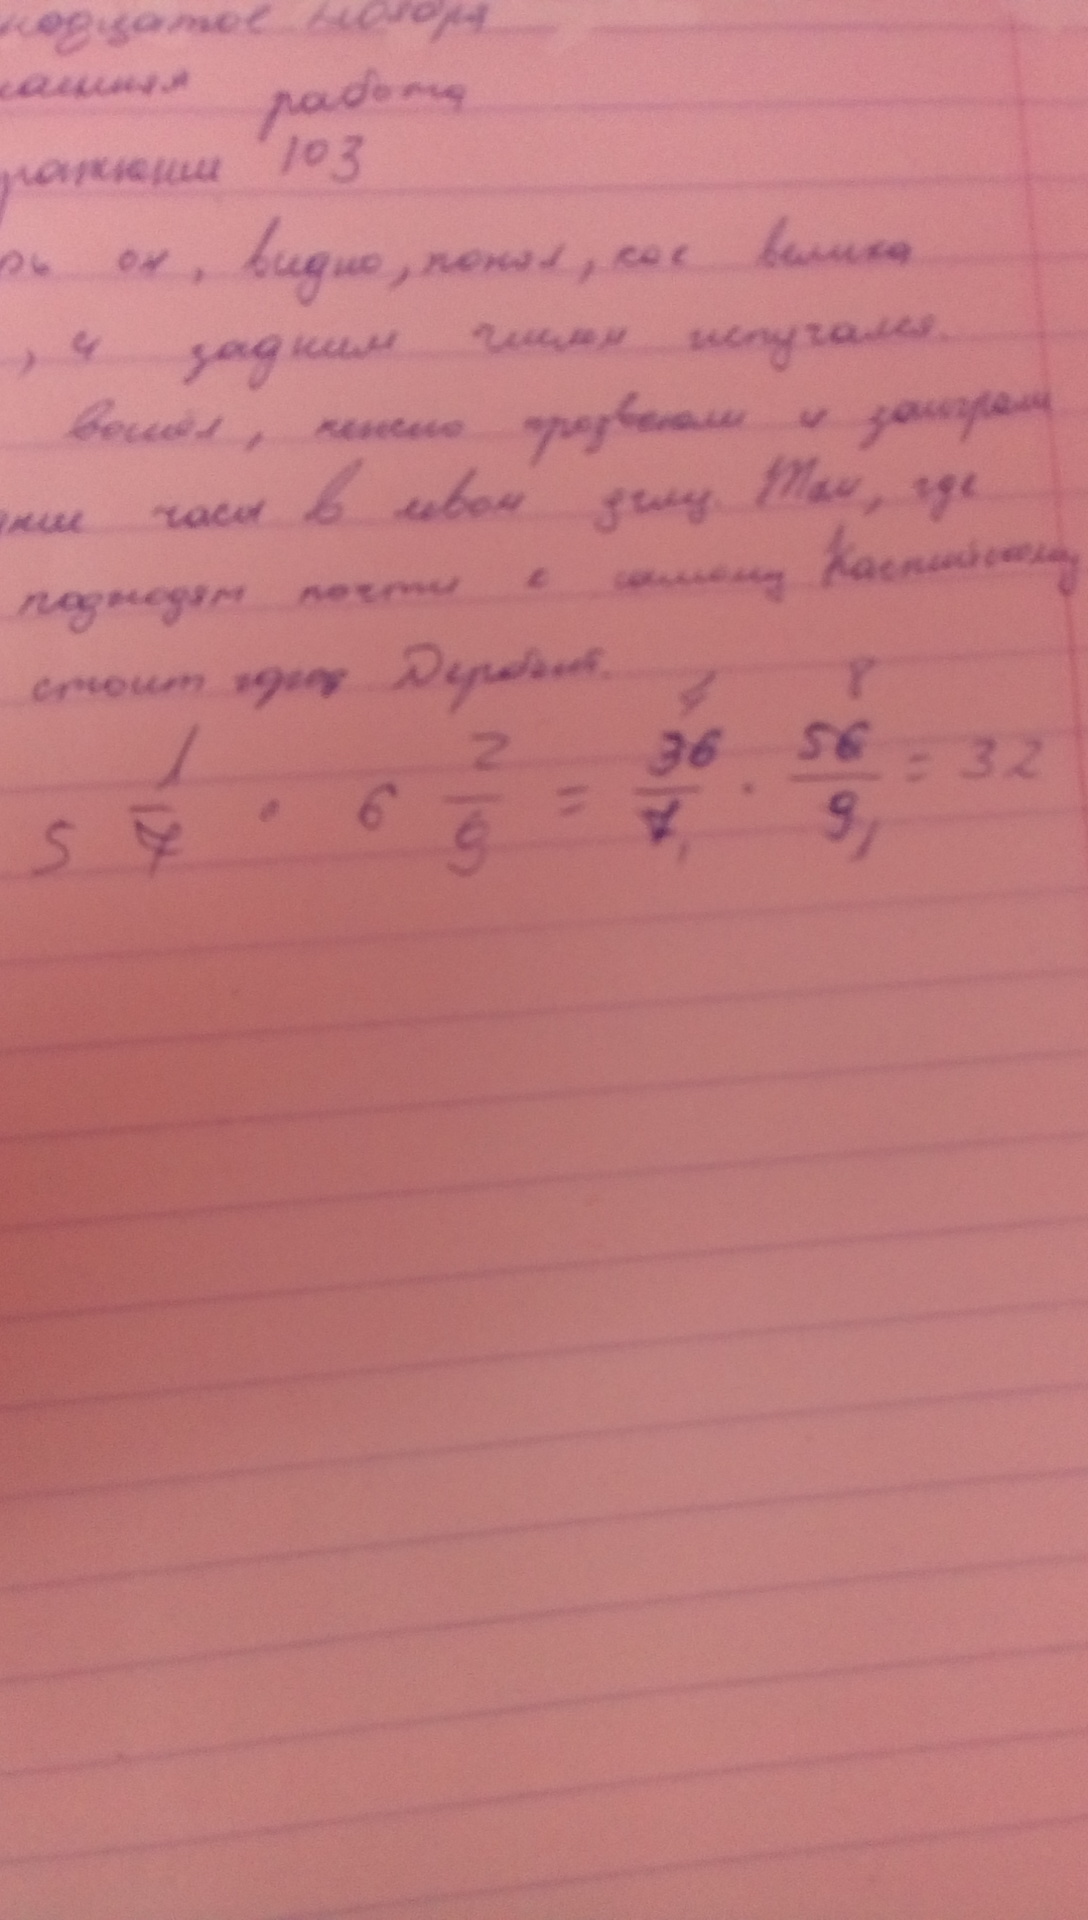 надцатое ноября
машняя работа
пражнении 103
рь он, видно, понял, как велика
, и задним числом испугался.
вошёл, нежно прозвенели и заиграли
часы в левом углу. Там, где
подходят почти к самому Каспийскому
стоит город Дербент.
5 1/7 · 6 2/9 = 36/7 · 56/9 = 32